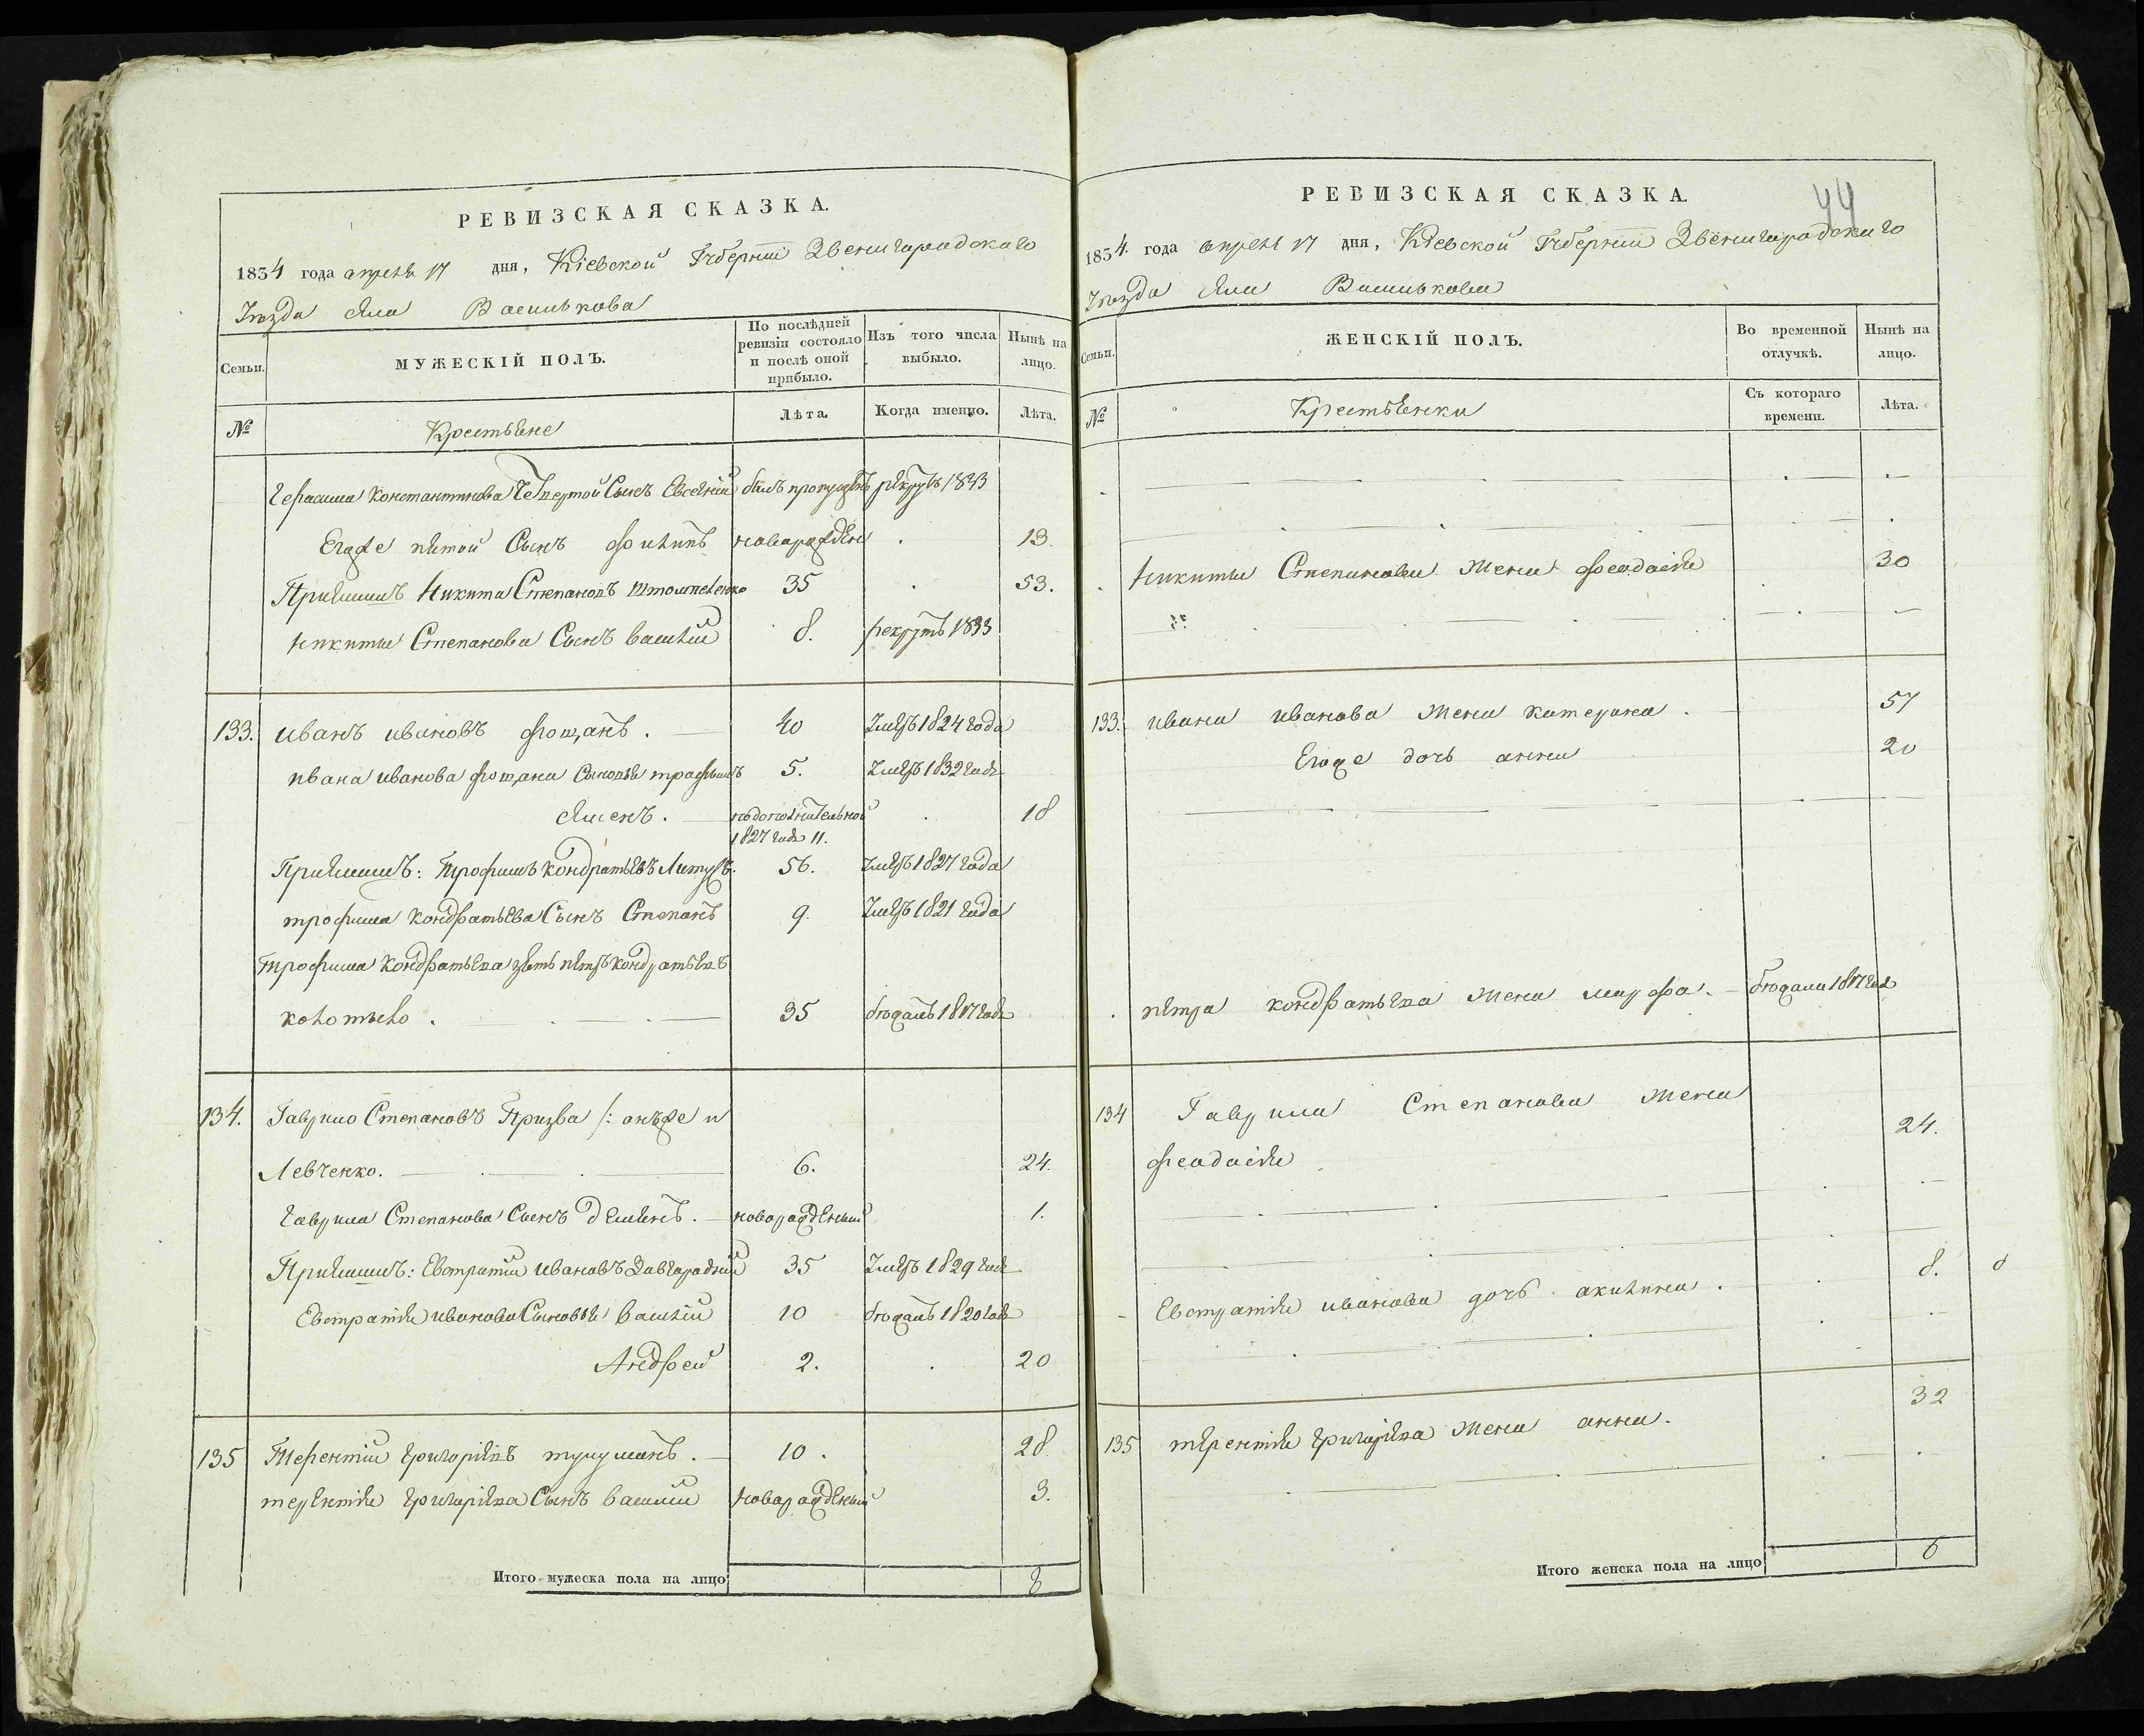 РЕВИЗСКАЯ СКАЗКА.
1834 года апреля 17 дня, Кіевской Губерніи Звенигородскаго
Уезда села Василькова
Семьи.
МУЖЕСКІЙ ПОЛЪ.
По послѣдней ревизіи состояло и послѣ оной прибыло.
Изъ того числа выбыло.
Нынѣ на лицо.
№
Крестьяне
Лѣта.
Когда именно.
Лѣта.
Герасима Константинова Четвертой Сынъ Евсевій былъ пропущенъ рекрутъ 1833
Егоже пятой Сынъ Филипъ новорожденъ 13.
Приймишъ Никита Степановъ 35 53.
Никиты Степанова Сынъ Василій 8. рекрутъ 1833
133. Иванъ Ивановъ Фощанъ. 40 Умеръ 1824 года
Ивана Иванова Фощана Сыновья Трофимъ 5. Умеръ 1832 года
Семенъ. 18
1827 года 11.
Приймишъ: Трофимъ Кондратьевъ 56. Умеръ 1827 года
Трофима Кондратьева Сынъ Степанъ 9. Умеръ 1821 года
Трофима Кондратьева зять Петръ Кондратьевъ
35 бежалъ 1817 года
134. Гаврило Степановъ Призва /: онъже и
Левченко. 6. 24.
Гаврила Степанова Сынъ Демянъ. новорожденый 1.
Приймишъ: Евстратій Ивановъ Завгородній 35 Умеръ 1829 года
Евстратія Иванова Сыновья Василій 10 бежалъ 1820 года
Андрей 2. 20
135 Терентій Григоріевъ 10. 28.
Терентія Григоріева Сынъ Василій новорожденый 3.
Итого мужеска пола на лицо 8
44
РЕВИЗСКАЯ СКАЗКА.
1834. года апреля 17 дня, Кіевской Губерніи Звенигородскаго
Уезда села Василькова
Семьи.
ЖЕНСКІЙ ПОЛЪ.
Во временной отлучкѣ.
Нынѣ на лицо.
№
Крестьянки
Съ котораго времени.
Лѣта.
Никиты Степанова жена Феодосія 30
133. Ивана Иванова жена Катерина. 57
Егоже дочь Анна 20
Петра Кондратьева жена Марфа. бежала 1817 года
134 Гаврила Степанова жена
Феодосія 24.
Евстратія Иванова дочь Акилина. 8.
135 Терентія Григоріева жена Анна. 32
Итого женска пола на лицо 6